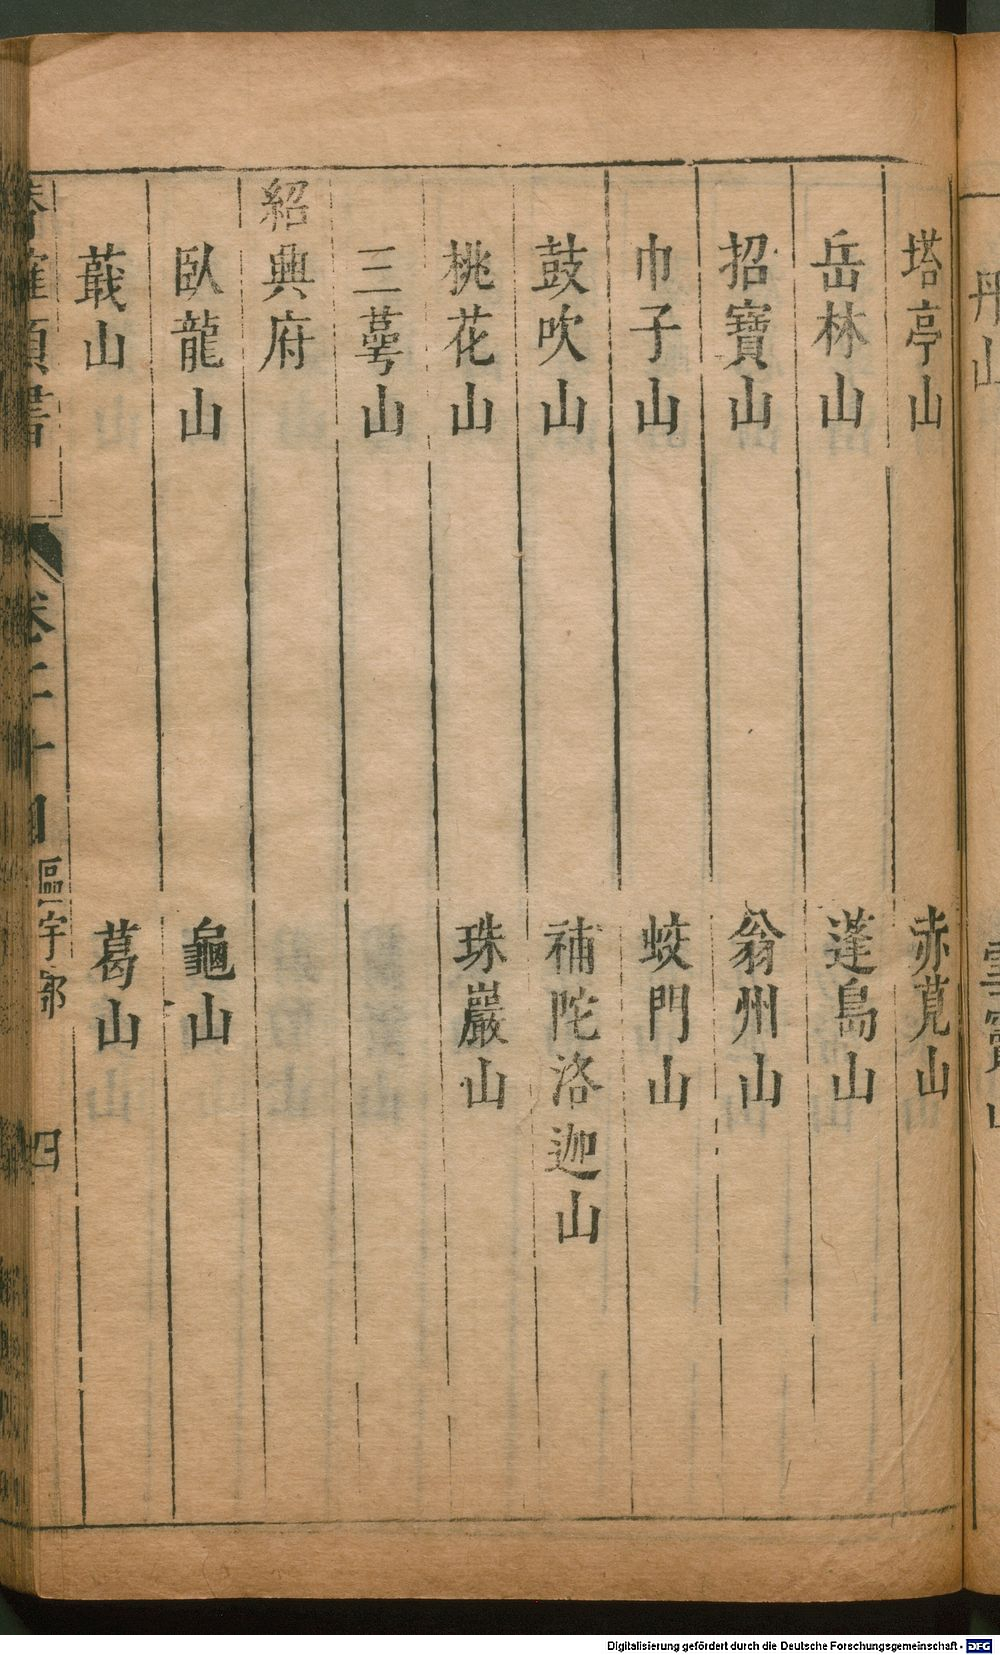 丹山
塔亭山　赤莧山
岳林山　蓬島山
招寶山　翁州山
巾子山　蛟門山
鼓吹山　補陀洛迦山
桃花山　珠巖山
三山
紹興府
臥龍山　龜山
蕺山　葛山
卷二十 區宇部 四
Digitalisierung gefördert durch die Deutsche Forschungsgemeinschaft - DFG